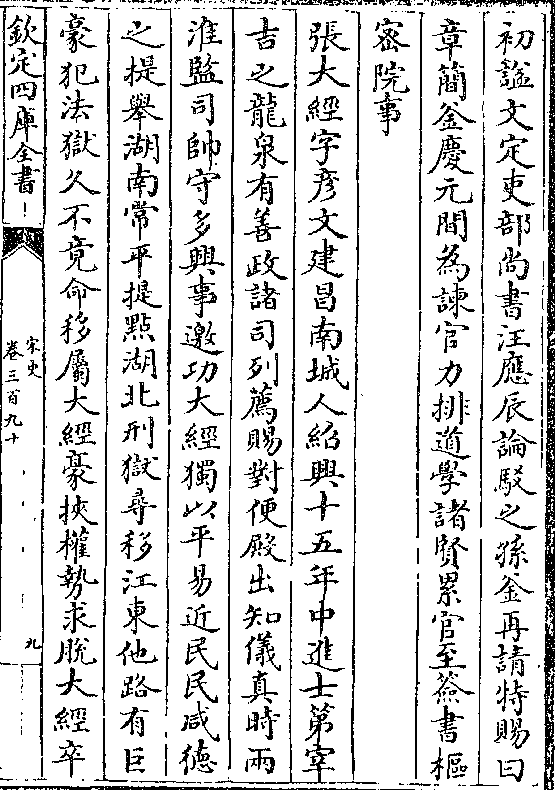 初謚文定吏部尚書汪應辰論駁之孫釡再請特賜曰
章簡釡慶元間為諫官力排道學諸賢累官至簽書樞
宻院事
張大經字彦文建昌南城人紹興十五年中進士第宰
吉之龍泉有善政諸司列薦賜對便殿出知儀真時兩
淮監司帥守多興事邀功大經獨以平易近民民咸徳
之提舉湖南常平提點湖北刑獄尋移江東他路有巨
豪犯法獄久不竟命移屬大經豪挾權勢求脱大經卒
欽定四庫全書
宋史
卷三百九十
九